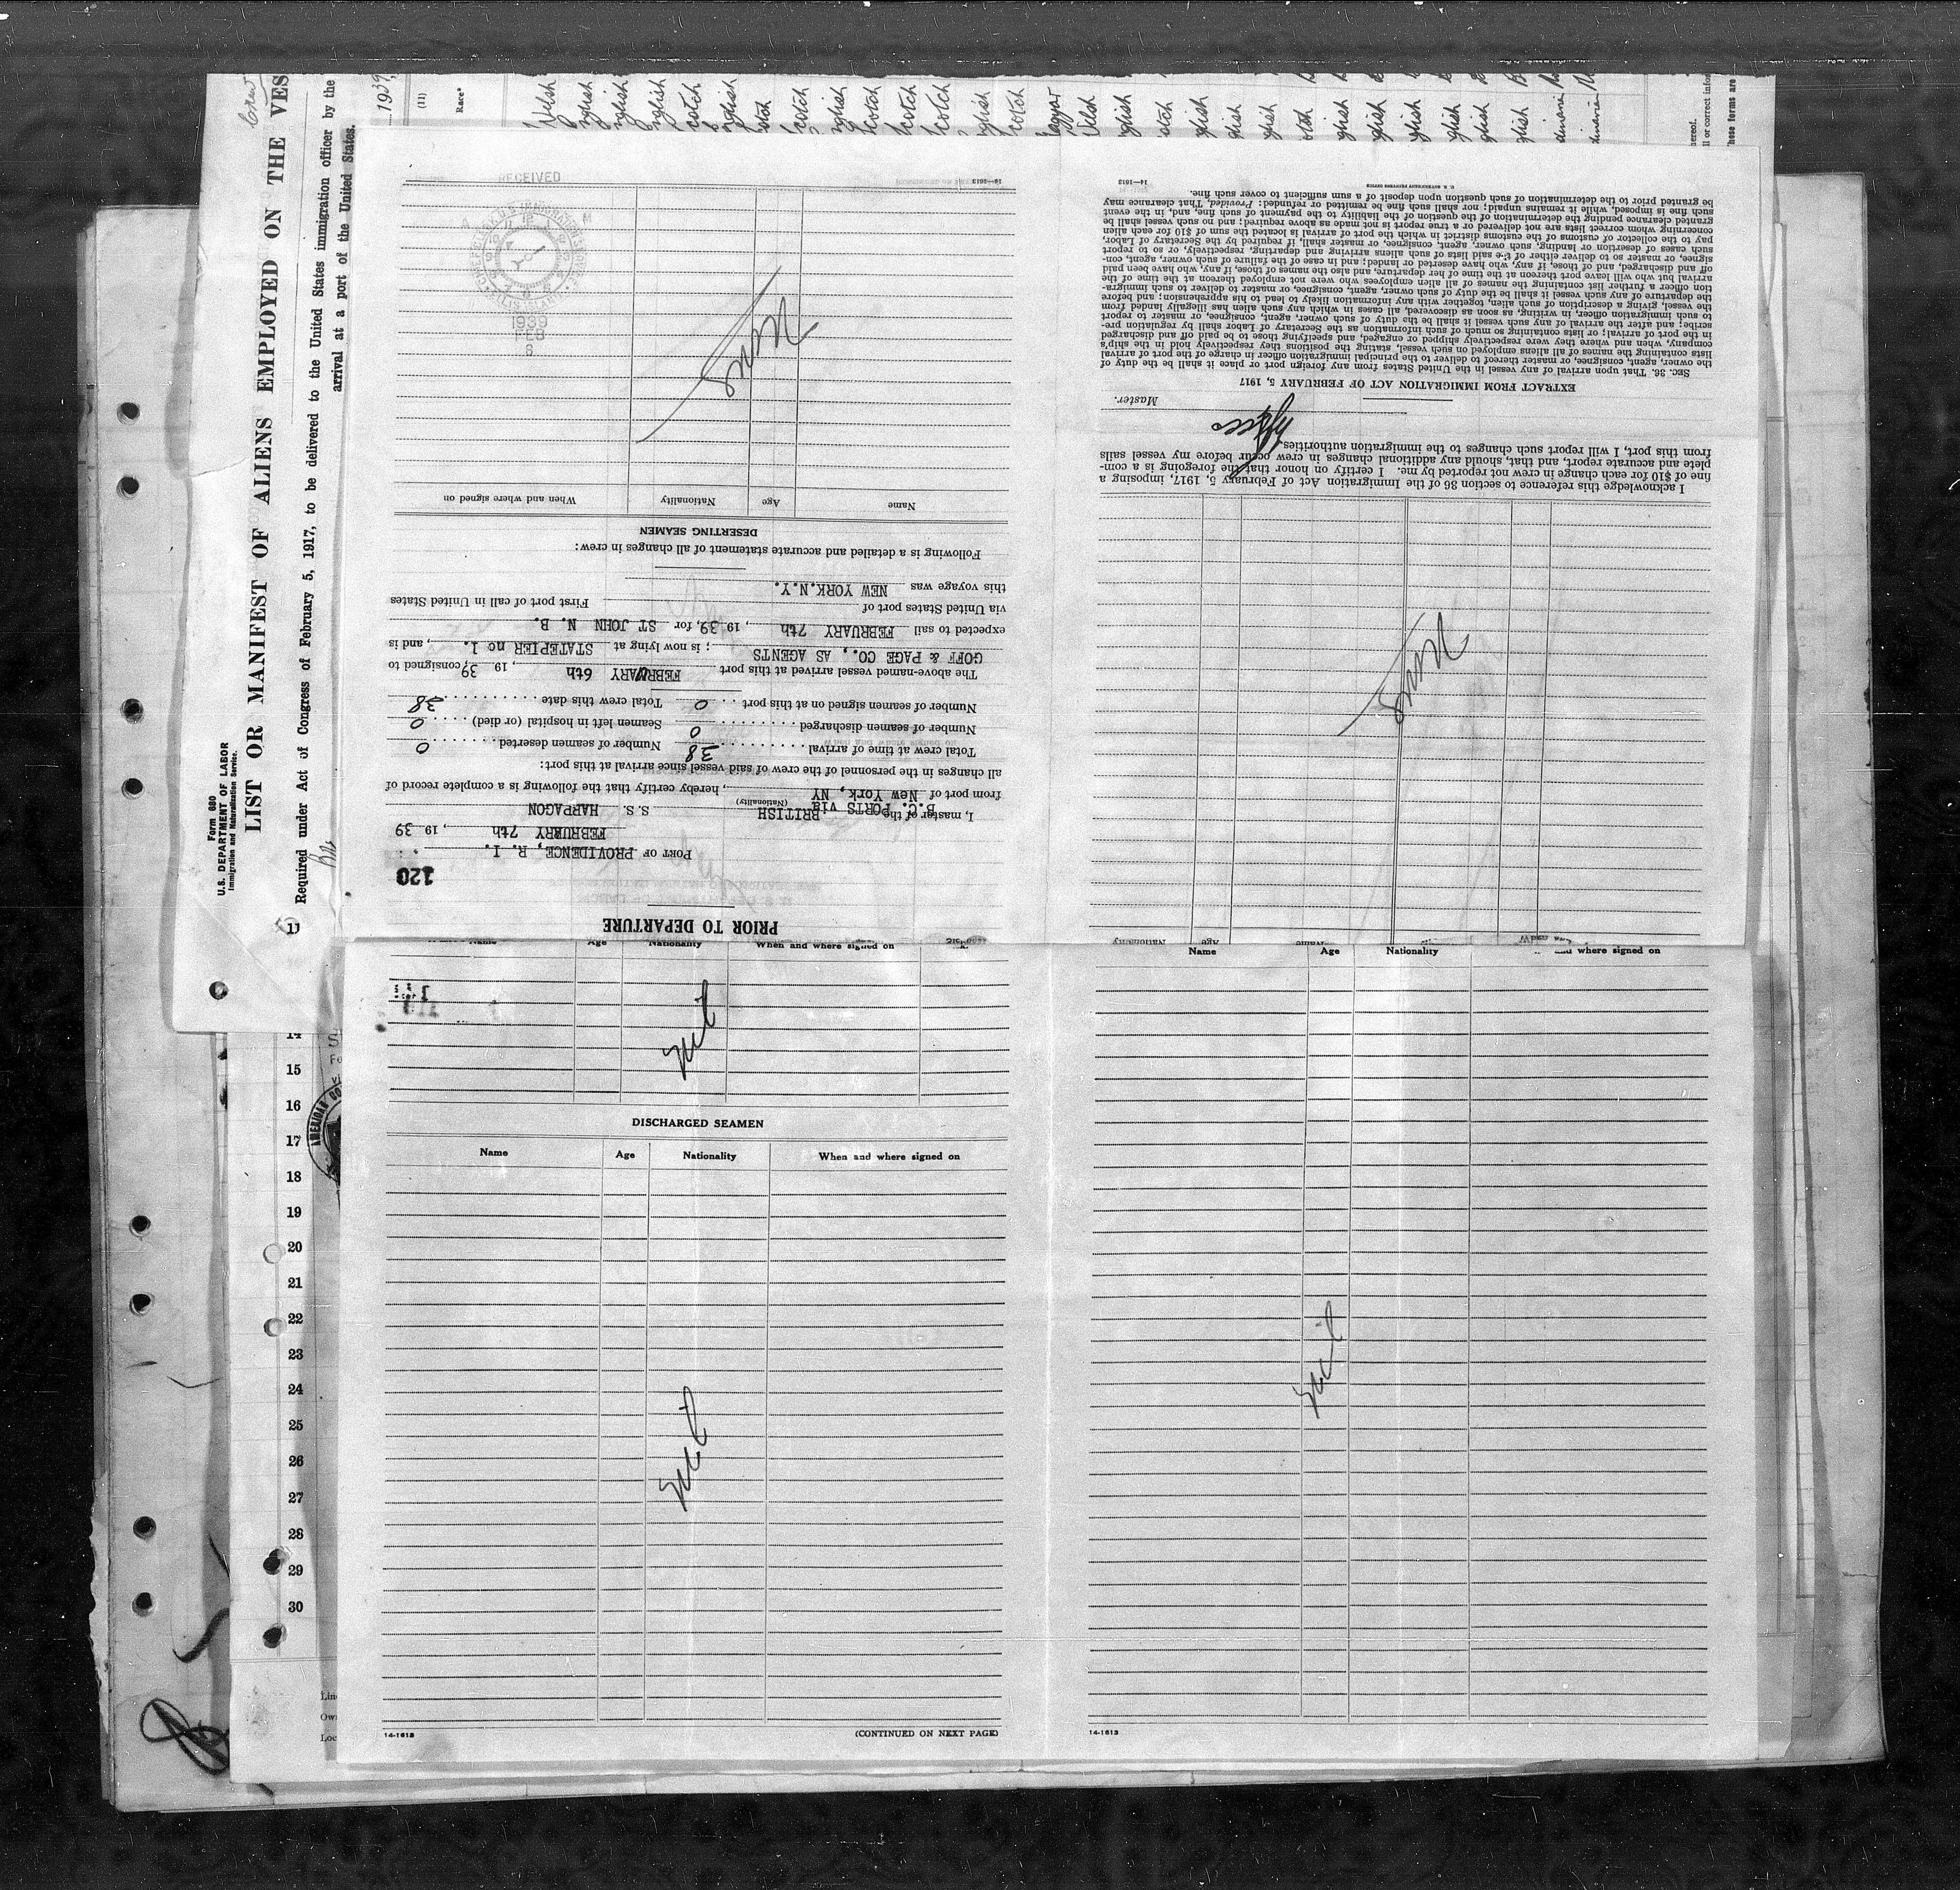 Form 680
U.S. DEPARTMENT OF LABOR
Immigration and Naturalization Service.
LIST OR MANIFEST OF ALIENS EMPLOYED ON THE VES
Required under Act of Congress of February 5, 1917, to be delivered to the United States immigration officer by the
arrival at a port of the United States.
1939
(11)
Race*
Welsh
English
nglish
nglish
cotch
nglish
cotch
cotch
nglish
cotch
cotch
cotch
nglish
cotch
nglish
glish
glish
glish
glish
glish
glish
glish
glish
hereof.
ll or correct infor
These forms are
PRIOR TO DEPARTURE
120
PORT OF PROVIDENCE, R. I.
FEBRUARY 7th, 19 39
I, master of the BRITISH S.S. HARPAGON
(Nationality)
B.C. PORTS via
from port of New York, NY, hereby certify that the following is a complete record of
all changes in the personnel of the crew of said vessel since arrival at this port:
Total crew at time of arrival 38 Number of seamen deserted 0
Number of seamen discharged 0 Seamen left in hospital (or died) 0
Number of seamen signed on at this port 0 Total crew this date 38
The above-named vessel arrived at this port FEBRUARY 6th, 19 39, consigned to
GOFF & PAGE CO., AS AGENTS; is now lying at STATEPIER no 1., and is
expected to sail FEBRUARY 7th, 19 39, for ST JOHN N. B.
via United States port of First port of call in United States
this voyage was NEW YORK.N.Y.
Following is a detailed and accurate statement of all changes in crew:
DESERTING SEAMEN
Name Age Nationality When and where signed on
RECEIVED
1939
FEB
6
14—1613
Name Age Nationality
I acknowledge this reference to section 36 of the Immigration Act of February 5, 1917, imposing a
fine of $10 for each change in crew not reported by me. I certify on honor that the foregoing is a com-
plete and accurate report, and that, should any additional changes in crew occur before my vessel sails
from this port, I will report such changes to the immigration authorities.
Master.
EXTRACT FROM IMMIGRATION ACT OF FEBRUARY 5, 1917
SEC. 36. That upon arrival of any vessel in the United States from any foreign port or place it shall be the duty of
the owner, agent, consignee, or master thereof to deliver to the principal immigration officer in charge of the port of arrival
lists containing the names of all aliens employed on such vessel, stating the positions they respectively hold in the ship's
company, when and where they were respectively shipped or engaged, and specifying those to be paid off and discharged
in the port of arrival; or lists containing so much of such information as the Secretary of Labor shall by regulation pre-
scribe; and after the arrival of any such vessel it shall be the duty of such owner, agent, consignee, or master to report
to such immigration officer, in writing, as soon as discovered, all cases in which any such alien has illegally landed from
the vessel, giving a description of such alien, together with any information likely to lead to his apprehension; and before
the departure of any such vessel it shall be the duty of such owner, agent, consignee, or master to deliver to such immigra-
tion officer a further list containing the names of all alien employees who were not employed thereon at the time of the
arrival but who will leave port thereon at the time of her departure, and also the names of those, if any, who have been paid
off and discharged, and of those, if any, who have deserted or landed; and in case of the failure of such owner, agent, con-
signee, or master so to deliver either of the said lists of such aliens arriving and departing, respectively, or so to report
such cases of desertion or landing, such owner, agent, consignee, or master shall, if required by the Secretary of Labor,
pay to the collector of customs of the customs district in which the port of arrival is located the sum of $10 for each alien
concerning whom correct lists are not delivered or a true report is not made as above required; and no such vessel shall be
granted clearance pending the determination of the question of the liability to the payment of such fine, and, in the event
such fine is imposed, while it remains unpaid; nor shall such fine be remitted or refunded: Provided, That clearance may
be granted prior to the determination of such question upon deposit of a sum sufficient to cover such fine.
U. S. GOVERNMENT PRINTING OFFICE
14—1613
Name Age Nationality When and where signed on
nil
DISCHARGED SEAMEN
Name Age Nationality When and where signed on
nil
14-1613
(CONTINUED ON NEXT PAGE)
Name Age Nationality and where signed on
nil
14-1613
11
14
15
16
17
18
19
20
21
22
23
24
25
26
27
28
29
30
Lin
Own
Loc
AMERICAN CO